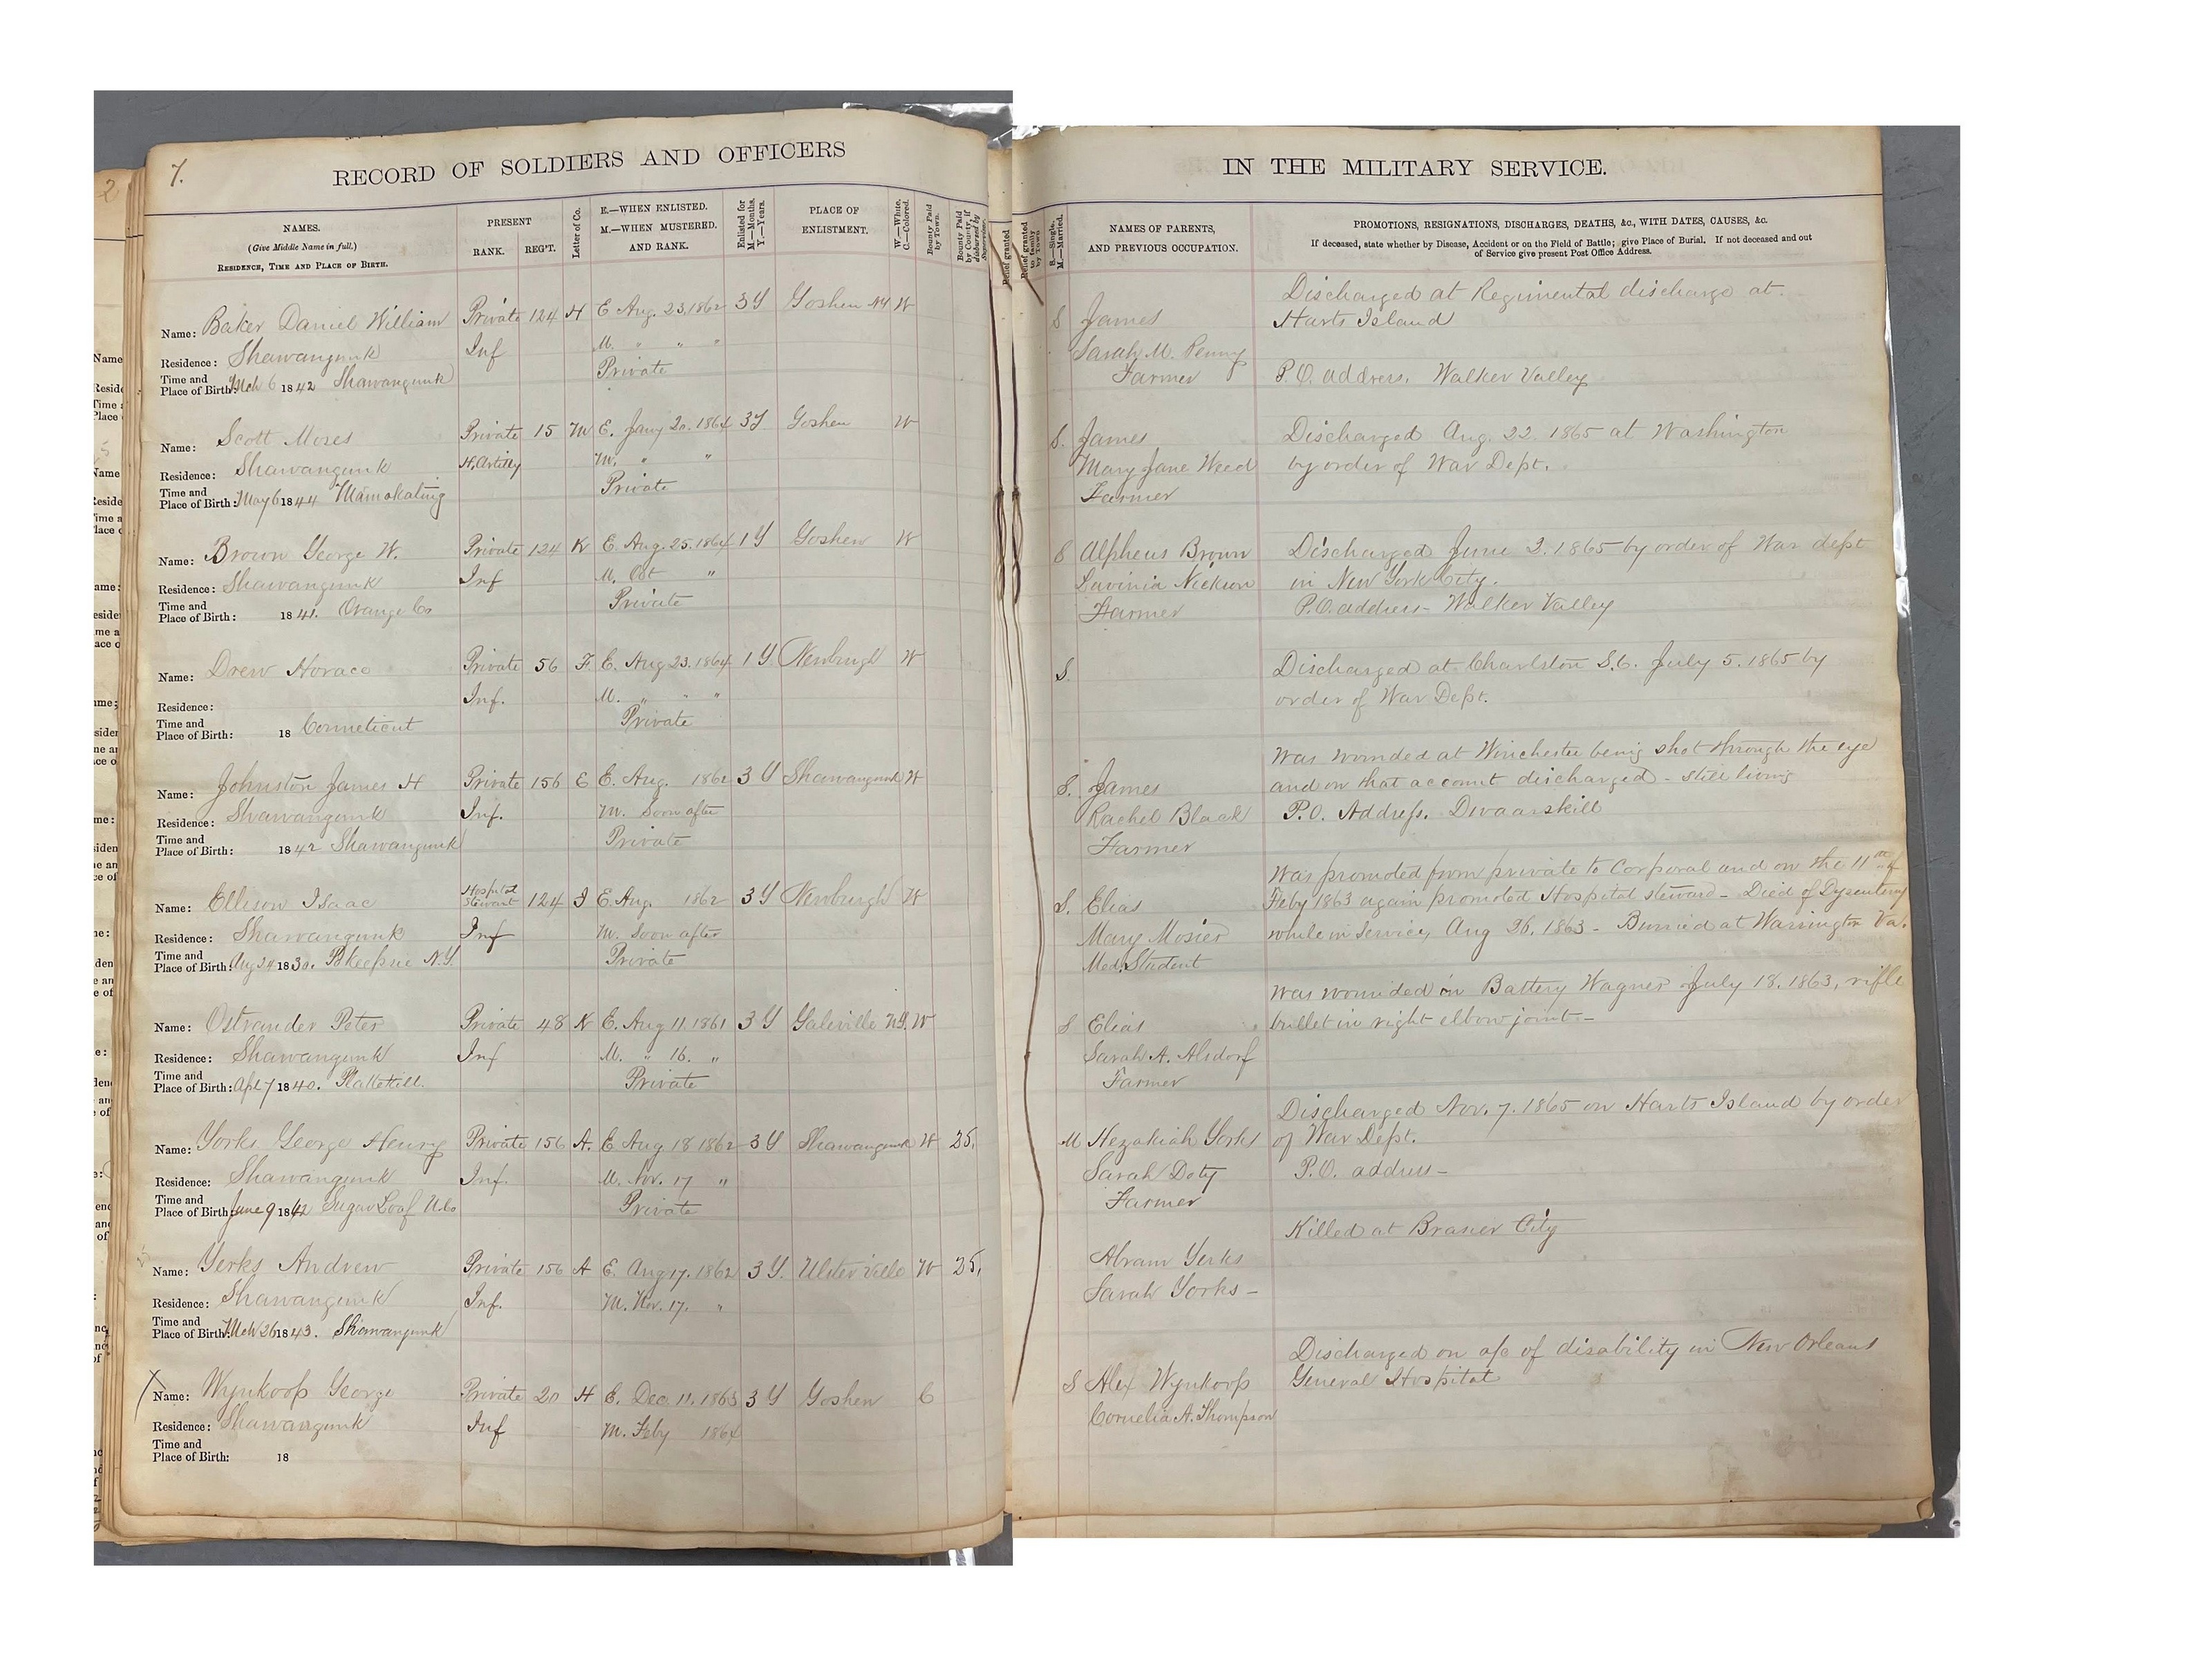 7.
RECORD OF SOLDIERS AND OFFICERS
IN THE MILITARY SERVICE.
NAMES.
(Give Middle Name in full.)
RESIDENCE, TIME AND PLACE OF BIRTH.
PRESENT
RANK. REG'T.
Letter of Co.
E.—WHEN ENLISTED.
M.—WHEN MUSTERED.
AND RANK.
Enlisted for
M.—Months.
Y.—Years.
PLACE OF
ENLISTMENT.
W.—White.
C.—Colored.
Bounty Paid
by Town.
Bounty Paid
by County, if
disbursed by
Supervisor.
Relief granted
Relief granted
to family
by Town
S.—Single.
M.—Married.
NAMES OF PARENTS,
AND PREVIOUS OCCUPATION.
PROMOTIONS, RESIGNATIONS, DISCHARGES, DEATHS, &c., WITH DATES, CAUSES, &c.
If deceased, state whether by Disease, Accident or on the Field of Battle; give Place of Burial. If not deceased and out
of Service give present Post Office Address.
Name: Baker Daniel William Private 124 H E Aug. 23, 1862 3 Y Goshen NY W
Residence: Shawangunk Inf M. " " "
Time and
Place of Birth: Mch 6 1842 Shawangunk Private
Discharged at Regimental discharge at.
S James Harts Island
Sarah M. Penny
Farmer P.O. address. Walker Valley
Name: Scott Moses Private 15 M E. Jany 20. 1864 3 Y Goshen W
Residence: Shawangunk H. Artilly M. " "
Time and
Place of Birth: May 6 1844 Mamakating Private
S. James Discharged Aug. 22. 1865 at Washington
Mary Jane Weed by order of War Dept.
Farmer
Name: Brown George W. Private 124 K E. Aug. 25. 1864 1 Y Goshen W
Residence: Shawangunk Inf M. Oct "
Time and
Place of Birth: 1841. Orange Co Private
S Alpheus Brown Discharged June 3. 1865 by order of War dept
Lavinia Nickson in New York City.
Farmer P.O. address - Walker Valley
Name: Drew Horace Private 56 F. E. Aug 23. 1864 1 Y. Newburgh W
Residence: Inf. M. " " "
Time and
Place of Birth: 18 Conneticut Private
S. Discharged at Charlston S.C. July 5. 1865 by
order of War Dept.
Name: Johnston James H Private 156 E E. Aug. 1862 3 Y Shawangunk W
Residence: Shawangunk Inf. M. Soon after
Time and
Place of Birth: 1842 Shawangunk Private
Was wounded at Winchester being shot through the eye
S. James and on that account discharged - still living
Rachel Black P.O. Address. Dwaarskill
Farmer
Name: Ellison Isaac Hospital Stewart 124 I E. Aug. 1862 3 Y Newburgh W
Residence: Shawangunk Inf M. Soon after
Time and
Place of Birth: Aug 24 1830. Pokeepsie N.Y. Private
Was promoted from private to Corporal and on the 11th of
S. Elias Feby 1863 again promoted Hospital steward - Died of Dysentery
Mary Mosier while in Service, Aug 26. 1863 - Burried at Warrington Va.
Med. Student
Name: Ostrander Peter Private 48 K E. Aug 11. 1861 3 Y Galeville N.Y. W
Residence: Shawangunk Inf M. " 16. "
Time and
Place of Birth: Apl 7 1840. Plattekill. Private
Was wounded in Battery Wagner July 18. 1863, rifle
S Elias bullet in right elbow joint. -
Sarah A. Alsdorf
Farmer
Name: Yorks George Henry Private 156 A. E Aug 18 1862 3 Y Shawangunk W 25,
Residence: Shawangunk Inf. M. Nov. 17 "
Time and
Place of Birth: June 9 1842 Sugar Loaf U.Co Private
Discharged Nov. 7. 1865 on Harts Island by order
M Hezakiah Yorks of War Dept.
Sarah Doty P.O. address -
Farmer
Name: Yerks Andrew Private 156 A E. Aug 17. 1862 3 Y. Ulster Ville W 25,
Residence: Shawangunk Inf. M. Nov. 17. "
Time and
Place of Birth: Mch 26 1843. Shawangunk
Killed at Brasier City
Abram Yerks
Sarah Yorks -
X Name: Wynkoop George Private 20 H E. Dec 11. 1863 3 Y Goshen C
Residence: Shawangunk Inf M. Feby 1864
Time and
Place of Birth: 18
Discharged on a/c of disability in New Orleans
S Alex Wynkoop General Hospital
Cornelia A. Thompson